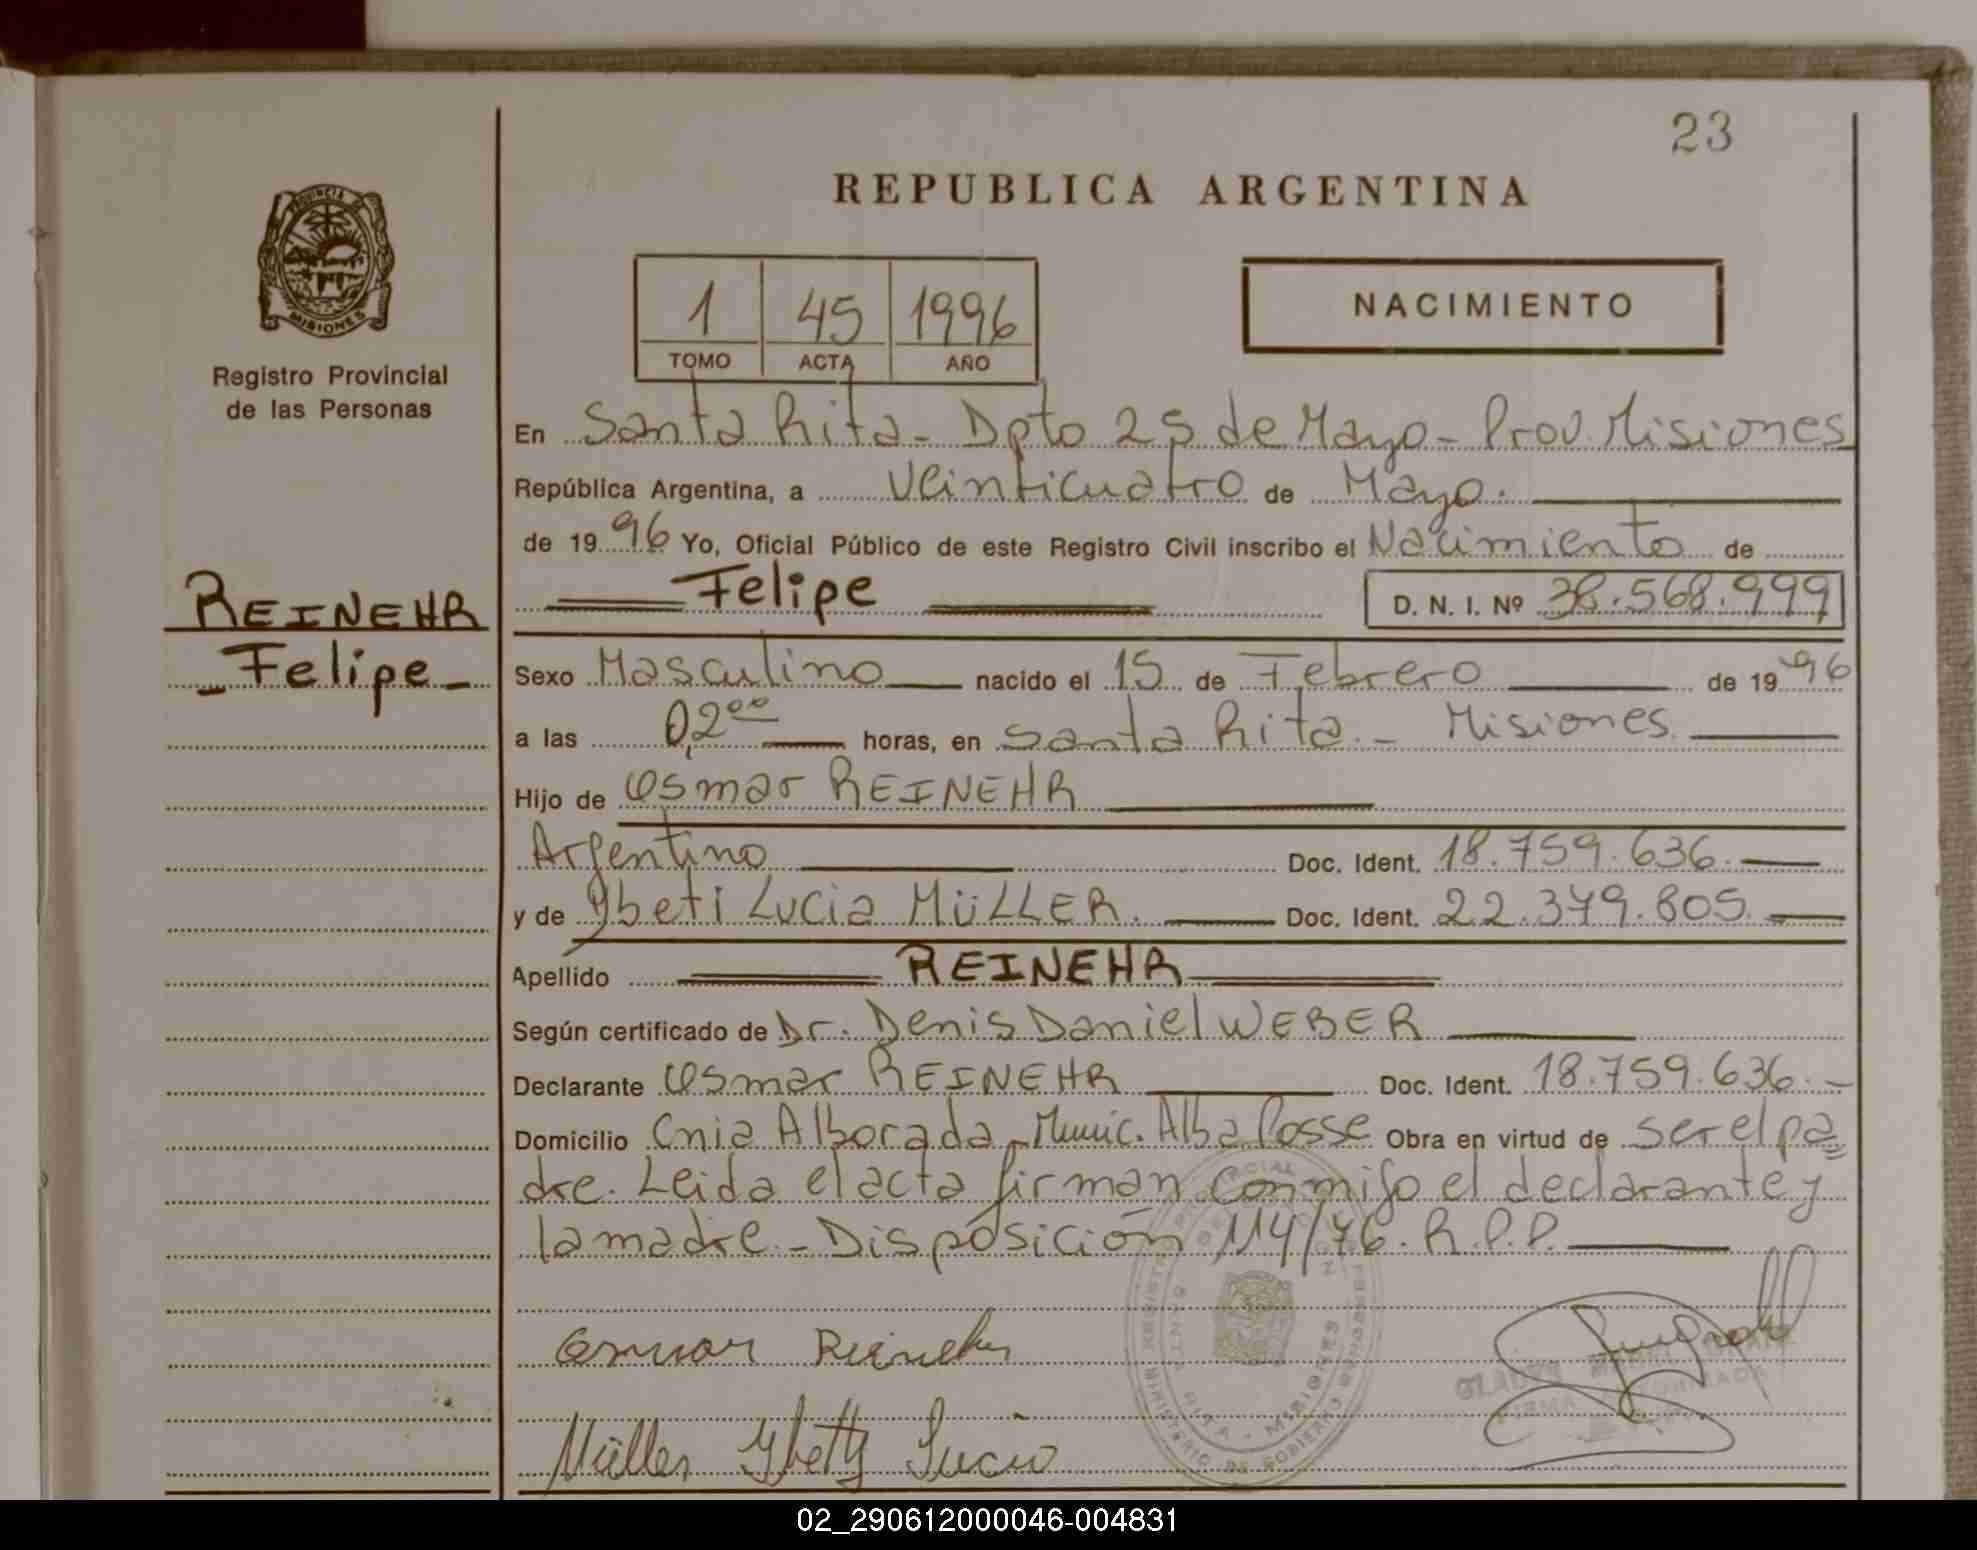 23
REPUBLICA ARGENTINA
PROVINCIA DE
MISIONES
Registro Provincial
de las Personas
1 45 1996
TOMO ACTA AÑO
NACIMIENTO
En Santa Rita - Dpto 25 de Mayo - Prov. Misiones
República Argentina, a veinticuatro de Mayo.
de 1996 Yo, Oficial Público de este Registro Civil inscribo el Nacimiento de
Felipe D. N. I. Nº 38.568.999
REINEHR
- Felipe -
Sexo Masculino nacido el 15 de Febrero de 1996
a las 02 00 horas, en Santa Rita. - Misiones.
Hijo de Osmar REINEHR
Argentino Doc. Ident. 18.759.636.
y de Ybeti Lucia MÜLLER. Doc. Ident. 22.349.805.
Apellido REINEHR
Según certificado de Dr. Denis Daniel WEBER
Declarante Osmar REINEHR Doc. Ident. 18.759.636. -
Domicilio Cnia Alborada - Munic. Alba Posse Obra en virtud de ser el pa=
dre. Leida el acta firman conmigo el declarante y
la madre. - Disposición 114/76. R.P.P.
Osmar Reinehr
Müller Ybetty Lucia
MINISTERIO DE GOBIERNO
SANTA RITA - MISIONES
02_290612000046-004831